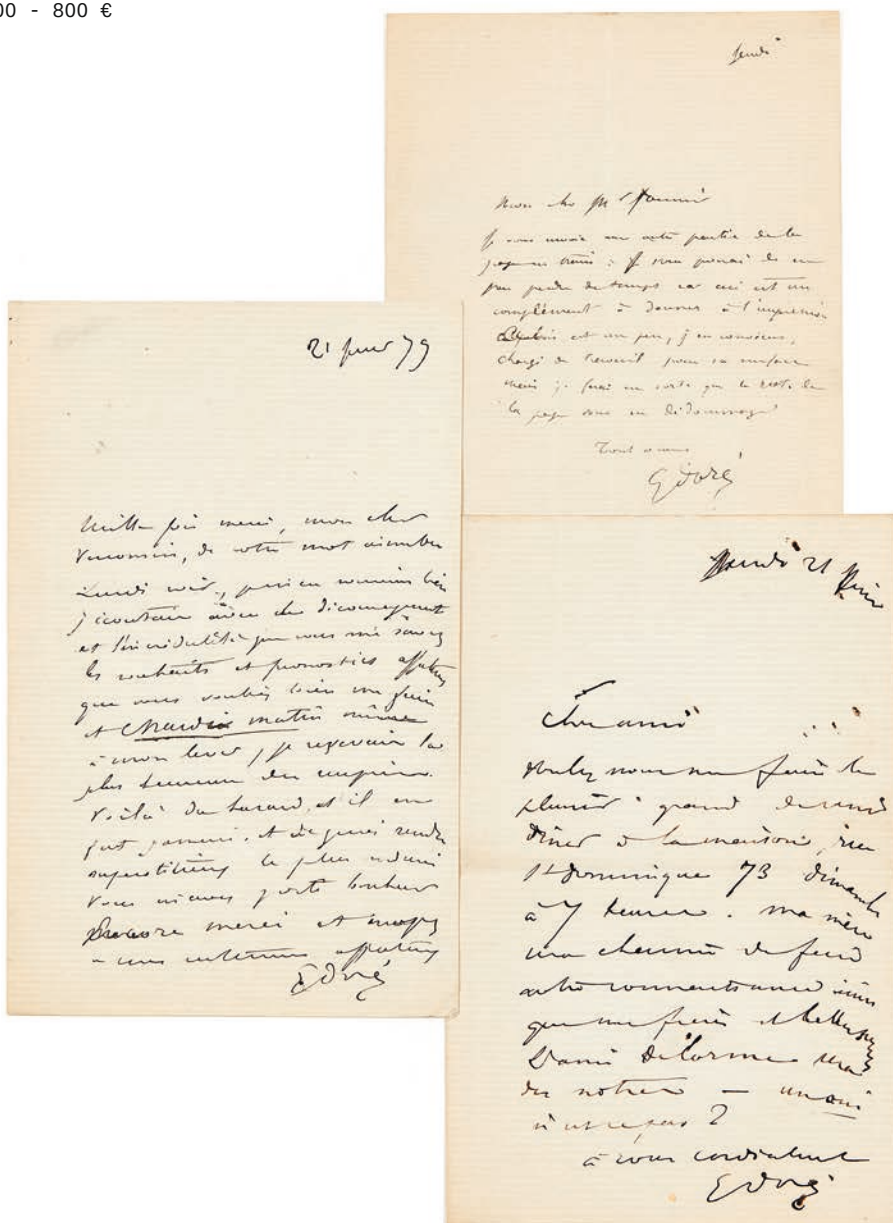 00 - 800 €
Jeudi
Mon cher Mr Fournier
Je vous envoie une autre partie de la
page en train : Je vous prierai de ne
pas perdre de temps car ceci est un
complément à donner à l'impression
est un peu, j'en conviens,
chargé de travail pour sa surface
mais je ferai en sorte que le reste de
la page vous en dédommage
Tout à vous
G Doré
21 79
Mille fois merci, mon cher
de votre mot aimable
Lundi soir,
j'écoutais avec du découragement
et l'incrédulité que vous me savez
les souhaits et pronostics affectueux
que vous vouliez bien me faire
et Mardi matin même
à mon lever, je recevais la
plus heureuse des surprises.
Voilà du hasard, s'il en
fut jamais, et de quoi rendre
superstitieux le plus endurci
Vous m'avez porté bonheur
Encore merci et croyez
à mes sentiments affectueux
G Doré
21
Cher ami
Voulez vous me faire le
plaisir grand de venir
dîner à la maison, rue
St Dominique 73 dimanche
à 7 heures. Ma mère
sera charmée de faire
votre connaissance ainsi
que mes frères et
L'ami Delorme sera
des nôtres — un oui
n'est ce pas ?
à vous cordialement
G Doré